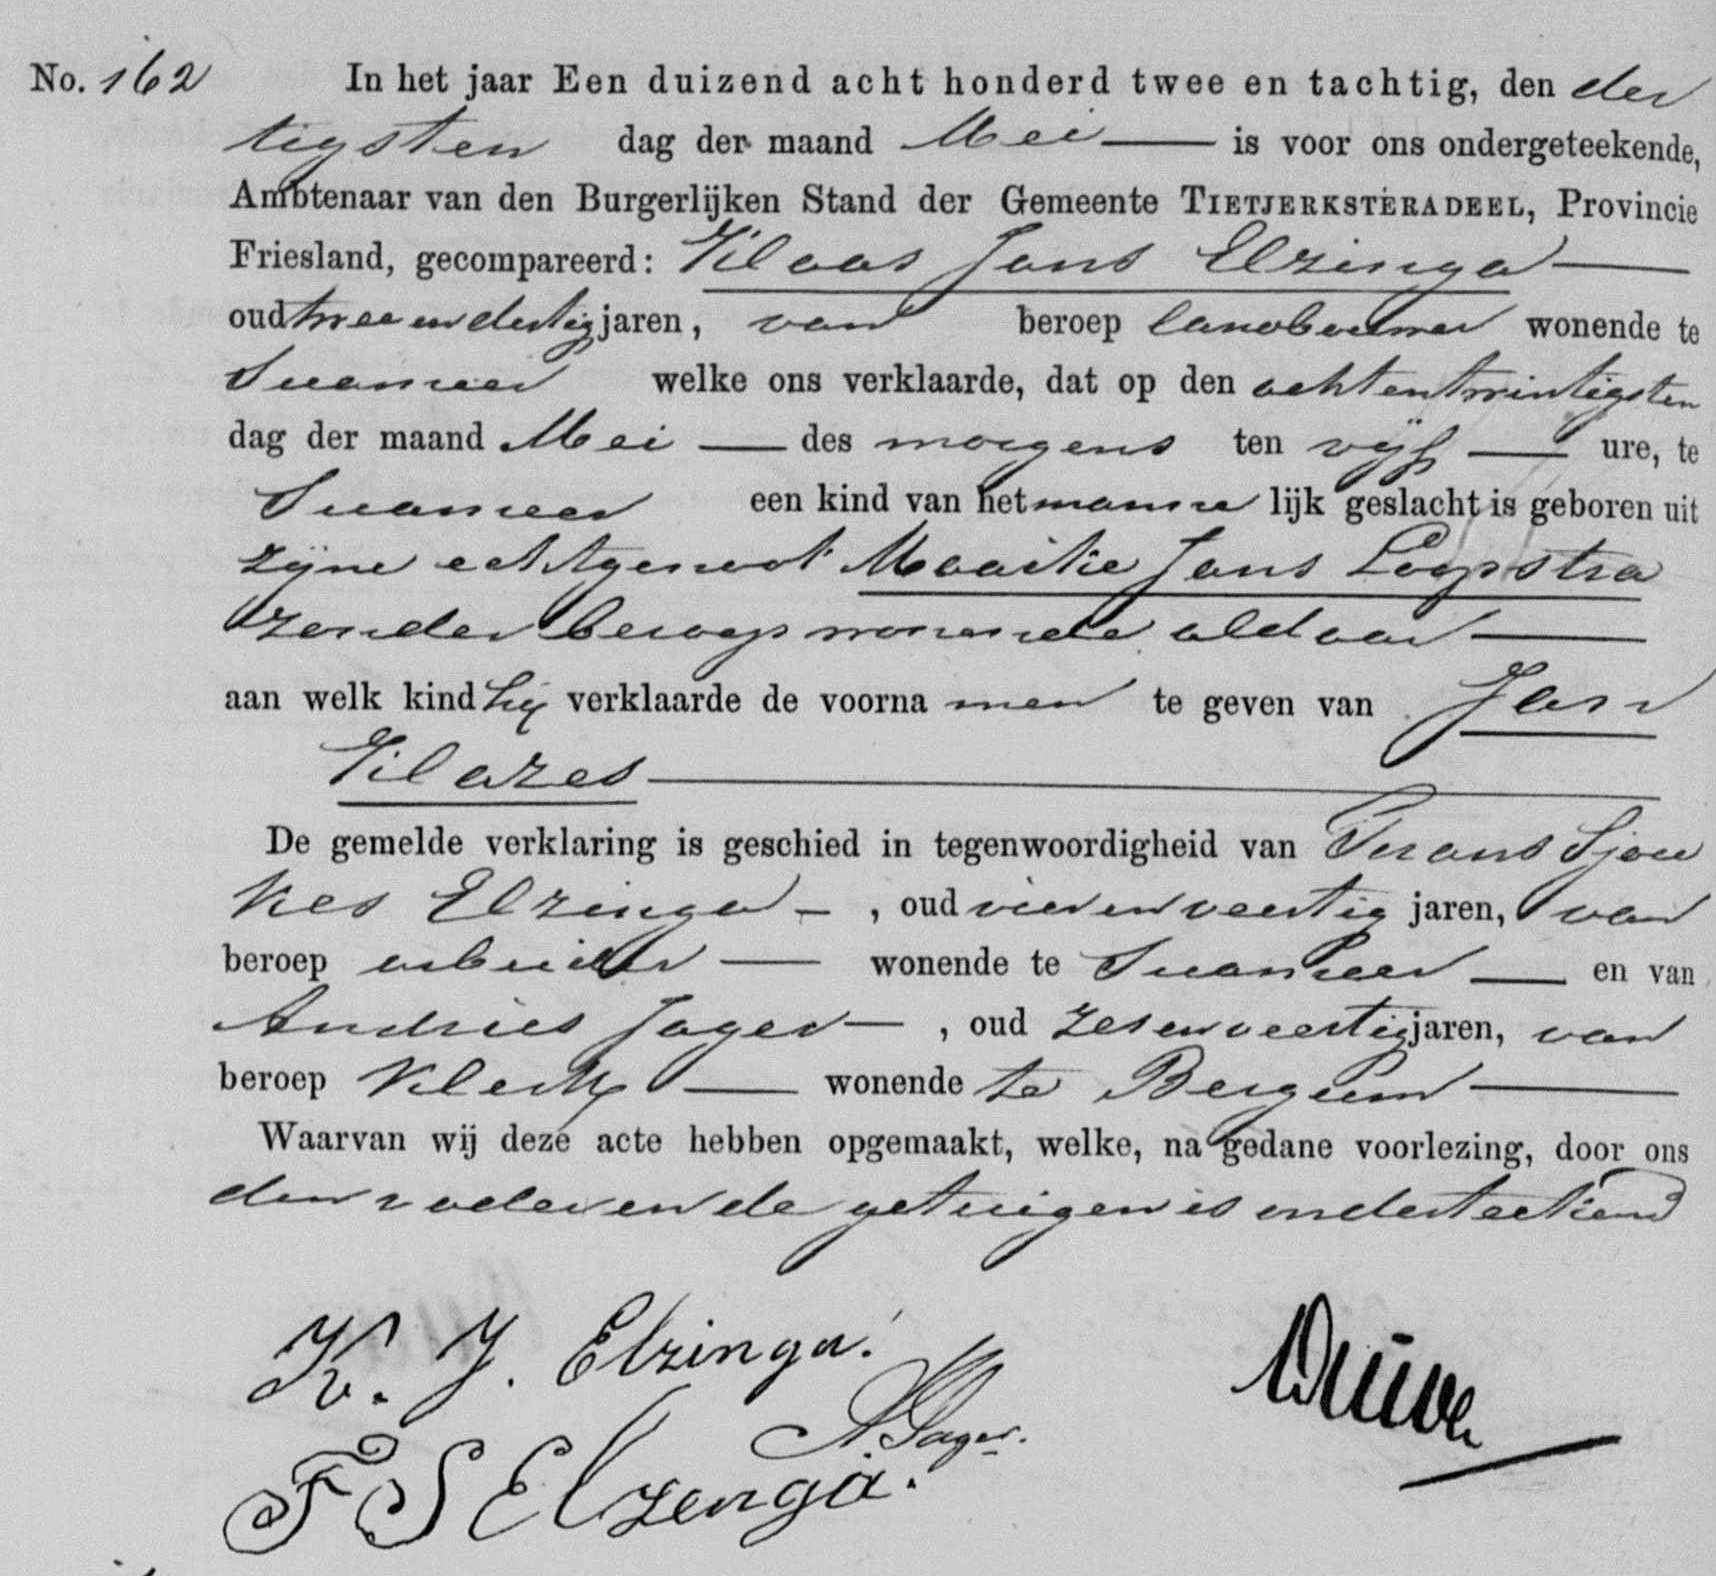 No. 162 In het jaar Een duizend acht honderd twee en tachtig, den der
tigsten dag der maand Mei is voor ons ondergeteekende,
Ambtenaar van den Burgerlijken Stand der Gemeente TIETJERKSTERADEEL, Provincie
Friesland, gecompareerd: Klaas Jans Elzinga
oud twee en dertig jaren, van beroep landbouwer wonende te
Suameer welke ons verklaarde, dat op den achtentwintigsten
dag der maand Mei des morgens ten vijf ure, te
Suameer een kind van het manne lijk geslacht is geboren uit
zijne echtgenoot Maaike Jans Loopstra
zonder beroep wonende aldaar
aan welk kind hij verklaarde de voorna men te geven van Jan
Klazes
De gemelde verklaring is geschied in tegenwoordigheid van Frans Sjou
kes Elzinga , oud vier en veertig jaren, van
beroep arbeider wonende te Suameer en van
Andries Jager , oud zes en veertig jaren, van
beroep klerk wonende te Bergum
Waarvan wij deze acte hebben opgemaakt, welke, na gedane voorlezing, door ons
den vader en de getuigen is onderteekend
K. J. Elzinga.
A. Jager.
F S Elzenga.